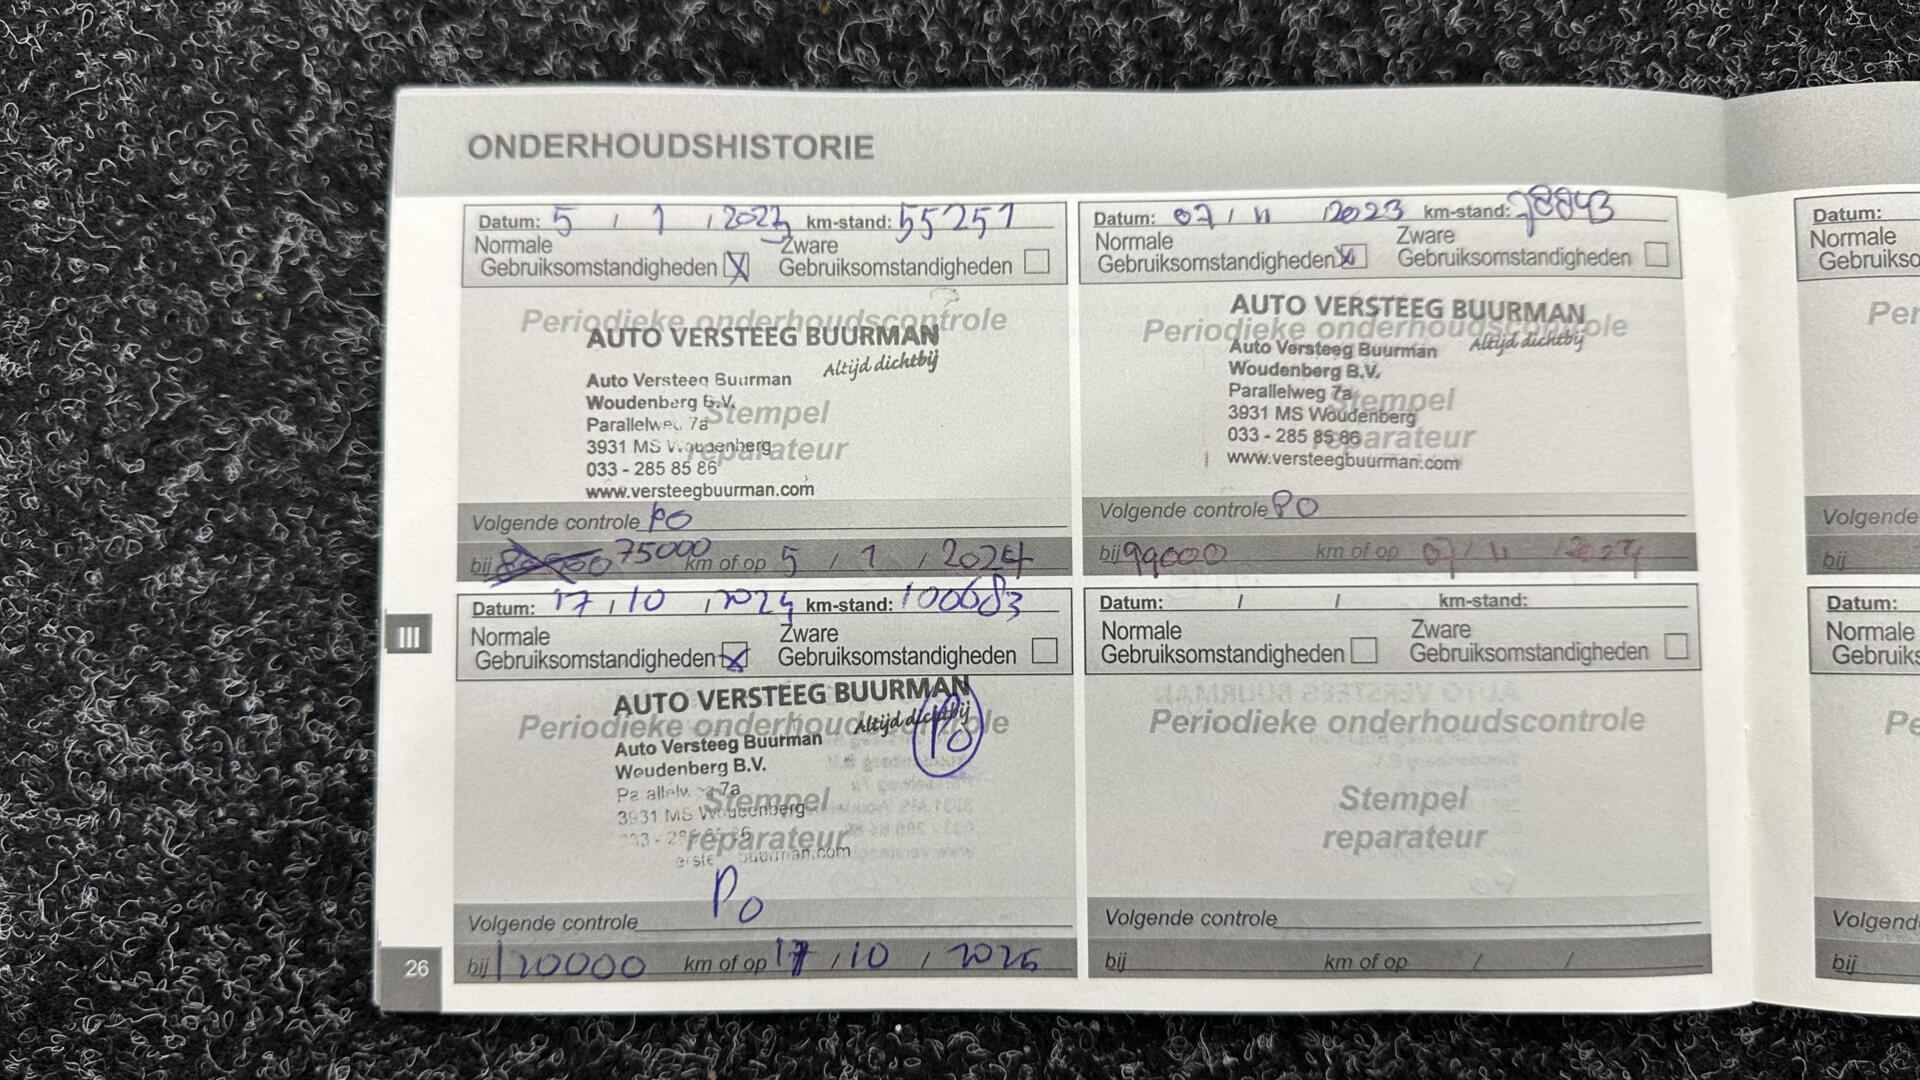 ONDERHOUDSHISTORIE
Datum: 5 / 1 / 2023 km-stand: 55257
Normale Zware
Gebruiksomstandigheden X Gebruiksomstandigheden
Periodieke onderhoudscontrole
AUTO VERSTEEG BUURMAN
Altijd dichtbij
Auto Versteeg Buurman
Woudenberg B.V.
Stempel
Parallelweg 7a
3931 MS Woudenberg
reparateur
033 - 285 85 86
www.versteegbuurman.com
Volgende controle PO
bij 75000 km of op 5 / 1 / 2024
Datum: 07 / 11 / 2023 km-stand: 78843
Normale Zware
Gebruiksomstandigheden X Gebruiksomstandigheden
AUTO VERSTEEG BUURMAN
Periodieke onderhoudscontrole
Altijd dichtbij
Auto Versteeg Buurman
Woudenberg B.V.
Parallelweg 7a
Stempel
3931 MS Woudenberg
033 - 285 85 86
reparateur
www.versteegbuurman.com
Volgende controle PO
bij 99000 km of op 07 / 11 / 2024
Datum: 17 / 10 / 2024 km-stand: 100683
Normale Zware
Gebruiksomstandigheden X Gebruiksomstandigheden
AUTO VERSTEEG BUURMAN
Periodieke onderhoudscontrole
Altijd dichtbij
PO
Auto Versteeg Buurman
Woudenberg B.V.
Parallelweg 7a
Stempel
3931 MS Woudenberg
033 - 285 85 86
reparateur
versteegbuurman.com
PO
Volgende controle
bij 120000 km of op 17 / 10 / 2025
Datum: / / km-stand:
Normale Zware
Gebruiksomstandigheden Gebruiksomstandigheden
Periodieke onderhoudscontrole
Stempel
reparateur
Volgende controle
bij km of op / /
III
26
Datum:
Normale
Gebruikso
Per
Volgende
bij
Datum:
Normale
Gebruiks
Pe
Volgend
bij